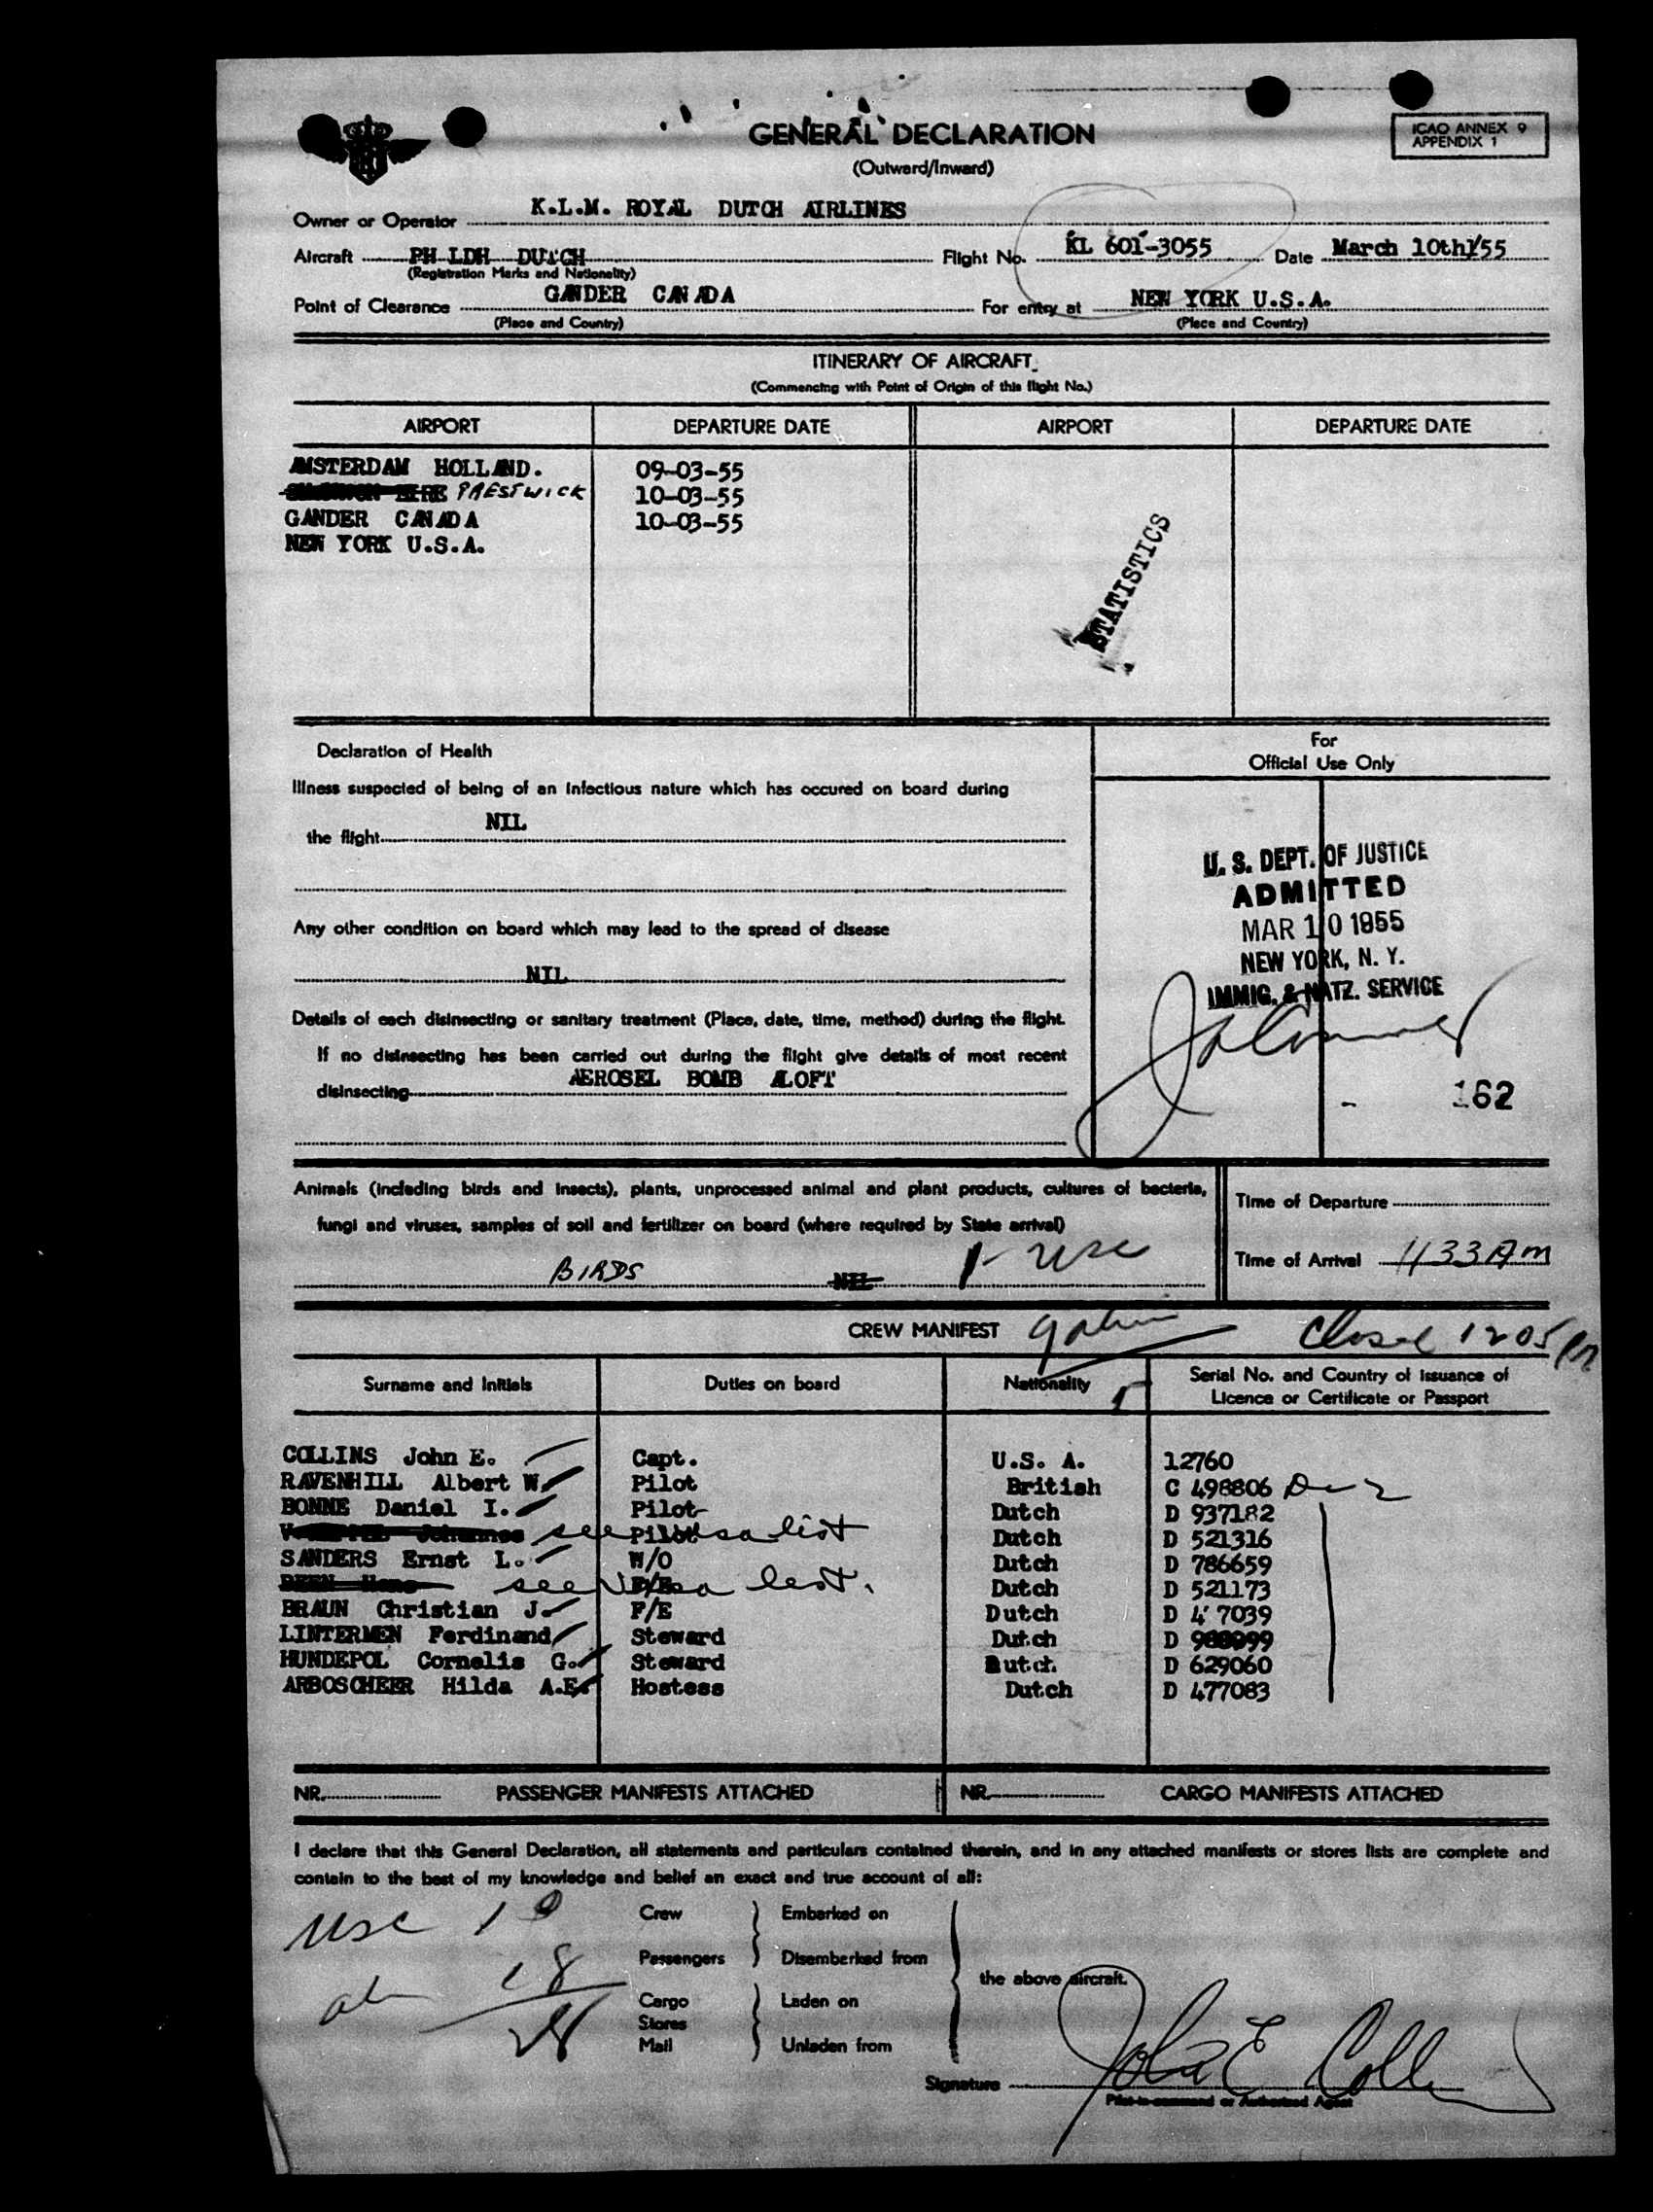 GENERAL DECLARATION
(Outward/Inward)
ICAO ANNEX 9
APPENDIX 1
Owner or Operator K.L.M. ROYAL DUTCH AIRLINES
Aircraft PH LDH DUTCH Flight No. KL 601-3055 Date March 10th1/55
(Registration Marks and Nationality)
Point of Clearance GANDER CANADA For entry at NEW YORK U.S.A.
(Place and Country) (Place and Country)
ITINERARY OF AIRCRAFT
(Commencing with Point of Origin of this flight No.)
AIRPORT DEPARTURE DATE AIRPORT DEPARTURE DATE
AMSTERDAM HOLLAND. 09-03-55
PRESTWICK 10-03-55
GANDER CANADA 10-03-55
NEW YORK U.S.A.
STATISTICS
Declaration of Health
For
Official Use Only
Illness suspected of being of an infectious nature which has occured on board during
the flight NIL
Any other condition on board which may lead to the spread of disease
NIL
Details of each disinsecting or sanitary treatment (Place, date, time, method) during the flight.
If no disinsecting has been carried out during the flight give details of most recent
disinsecting AEROSEL BOMB ALOFT
U. S. DEPT. OF JUSTICE
ADMITTED
MAR 10 1955
NEW YORK, N. Y.
IMMIG. & NATZ. SERVICE
162
Animals (including birds and insects), plants, unprocessed animal and plant products, cultures of bacteria,
fungi and viruses, samples of soil and fertilizer on board (where required by State arrival)
BIRDS NIL 1- usc
Time of Departure
Time of Arrival 1133 AM
CREW MANIFEST 9 alien Closed 1205 PM
Surname and Initials Duties on board Nationality Serial No. and Country of Issuance of
Licence or Certificate or Passport
COLLINS John E. Capt. U.S. A. 12760
RAVENHILL Albert W. Pilot British C 498806
BONNE Daniel I. Pilot Dutch D 937182
Johannes see visa list Pilot Dutch D 521316
SANDERS Ernst L. W/O Dutch D 786659
BEEN Hans see Visa list. F/E Dutch D 521173
BRAUN Christian J. F/E Dutch D 4 7039
LINTERMEN Ferdinand Steward Dutch D 988999
HUNDEPOL Cornelis G. Steward Dutch D 629060
ARBOSCHEER Hilda A.E. Hostess Dutch D 477083
NR. PASSENGER MANIFESTS ATTACHED NR. CARGO MANIFESTS ATTACHED
I declare that this General Declaration, all statements and particulars contained therein, and in any attached manifests or stores lists are complete and
contain to the best of my knowledge and belief an exact and true account of all:
usc 10
al 18
Crew Embarked on
Passengers Disembarked from
the above aircraft.
Cargo Laden on
Stores
Mail Unladen from
Signature John E Collins
Pilot-in-command or Authorized Agent